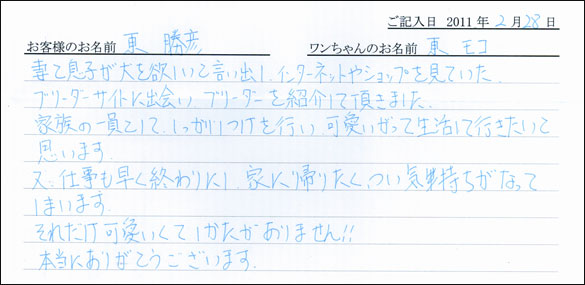 ご記入日 2011年2月28日
お客様のお名前 東 勝彦 ワンちゃんのお名前 東 モコ
妻と息子が犬を欲しいと言い出し、インターネットやショップを見ていた。
ブリーダーサイトに出会い、ブリーダーを紹介して頂きました。
家族の一員として、しっかりしつけを行い、可愛いがって生活して行きたいと
思います。
又、仕事も早く終わりにし、家に帰りたく、つい気持ちがなって
しまいます。
それだけ可愛いくてしかたがありません!!
本当にありがとうございます。